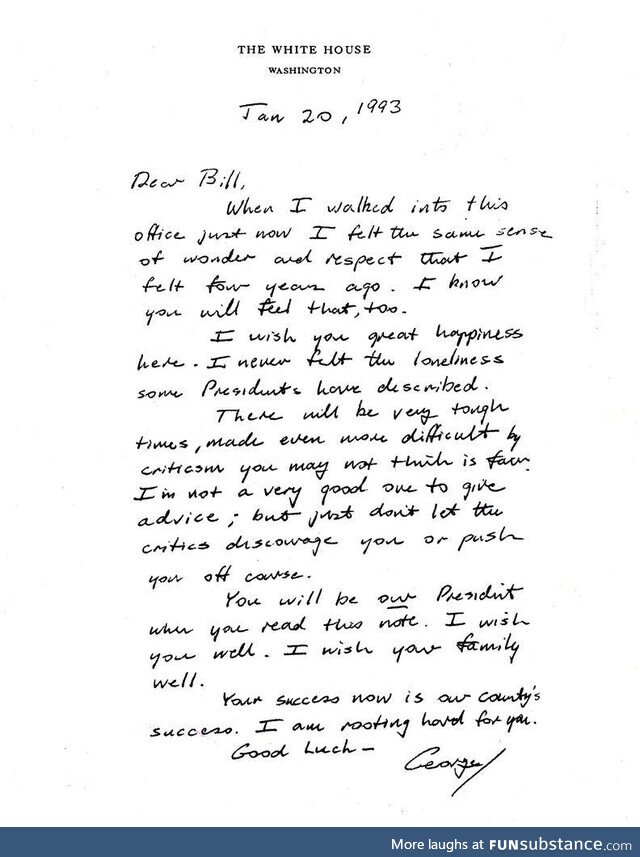 THE WHITE HOUSE
WASHINGTON
Jan 20, 1993
Dear Bill,
When I walked into this
office just now I felt the same sense
of wonder and respect that I
felt four years ago. I know
you will feel that, too.
I wish you great happiness
here. I never felt the loneliness
some Presidents have described.
There will be very tough
times, made even more difficult by
criticism you may not think is fair.
I'm not a very good one to give
advice; but just don't let the
critics discourage you or push
you off course.
You will be our President
when you read this note. I wish
you well. I wish your family
well.
Your success now is our county's
success. I am rooting hard for you.
Good Luck —
George
More laughs at FUNsubstance.com